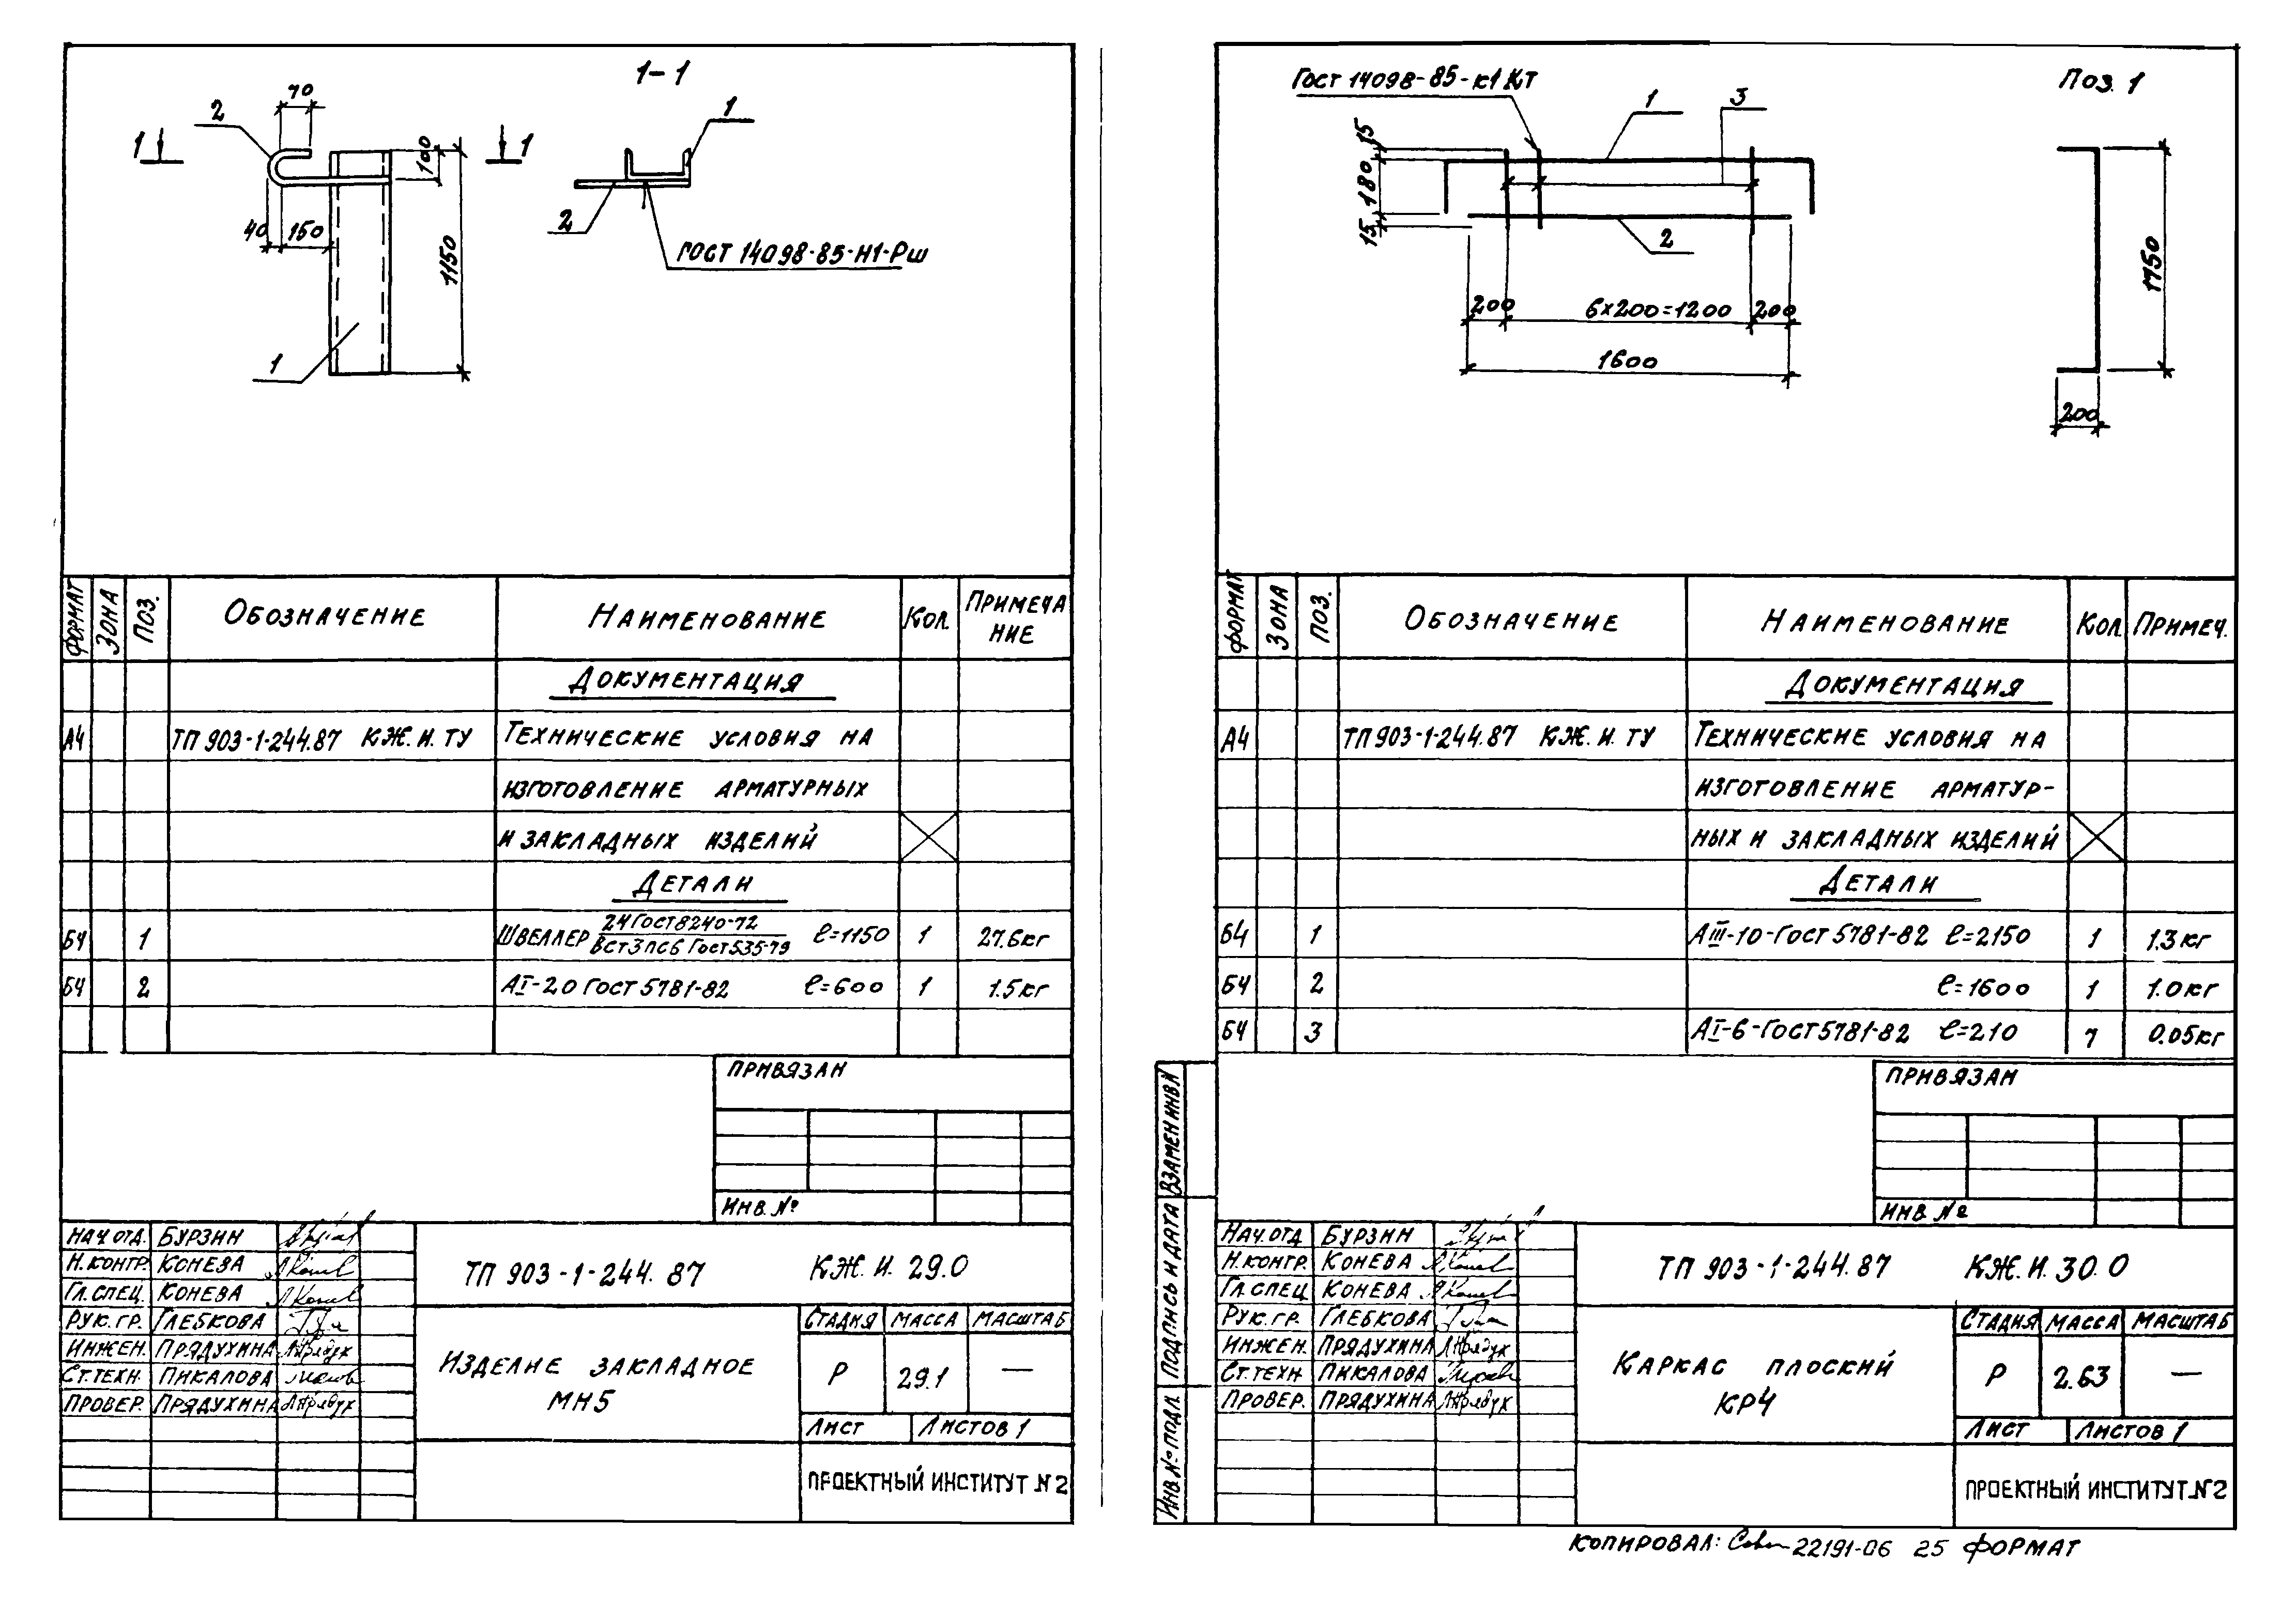 1-1
70
2
1
1
1
100
40
150
1150
2
ГОСТ 14098-85-Н1-Рш
1
ФОРМАТ ЗОНА ПОЗ. ОБОЗНАЧЕНИЕ НАИМЕНОВАНИЕ КОЛ. ПРИМЕЧА
НИЕ
ДОКУМЕНТАЦИЯ
А4 ТП 903-1-244.87 КЖ.И.ТУ ТЕХНИЧЕСКИЕ УСЛОВИЯ НА
ИЗГОТОВЛЕНИЕ АРМАТУРНЫХ
И ЗАКЛАДНЫХ ИЗДЕЛИЙ
ДЕТАЛИ
БЧ 1 ШВЕЛЛЕР 24 ГОСТ 8240-72 ℓ=1150 1 27.6кг
ВСт3пс6 ГОСТ 535-79
БЧ 2 АI-20 ГОСТ 5781-82 ℓ=600 1 1.5кг
ПРИВЯЗАН
ИНВ. №
НАЧ.ОТД. БУРЗИН
Н.КОНТР. КОНЕВА
ГЛ.СПЕЦ. КОНЕВА
РУК.ГР. ГЛЕБКОВА
ИНЖЕН. ПРЯДУХИНА
СТ.ТЕХН. ПИКАЛОВА
ПРОВЕР. ПРЯДУХИНА
ТП 903-1-244.87 КЖ.И. 29.0
ИЗДЕЛИЕ ЗАКЛАДНОЕ
МН5
СТАДИЯ МАССА МАСШТАБ
Р 29.1 —
ЛИСТ ЛИСТОВ 1
ПРОЕКТНЫЙ ИНСТИТУТ №2
ГОСТ 14098-85-К1 Кт
1
3
ПОЗ. 1
15
180
15
2
200 6х200=1200 200
1600
1750
200
ФОРМАТ ЗОНА ПОЗ. ОБОЗНАЧЕНИЕ НАИМЕНОВАНИЕ КОЛ. ПРИМЕЧ.
ДОКУМЕНТАЦИЯ
А4 ТП 903-1-244.87 КЖ.И.ТУ ТЕХНИЧЕСКИЕ УСЛОВИЯ НА
ИЗГОТОВЛЕНИЕ АРМАТУР-
НЫХ И ЗАКЛАДНЫХ ИЗДЕЛИЙ
ДЕТАЛИ
БЧ 1 АIII-10-ГОСТ 5781-82 ℓ=2150 1 1.3кг
БЧ 2 ℓ=1600 1 1.0кг
БЧ 3 АI-6-ГОСТ 5781-82 ℓ=210 7 0.05кг
ПРИВЯЗАН
ИНВ. №
ВЗАМЕН ИНВ.№
ПОДПИСЬ И ДАТА
ИНВ.№ ПОДЛ.
НАЧ.ОТД БУРЗИН
Н.КОНТР. КОНЕВА
ГЛ.СПЕЦ КОНЕВА
РУК.ГР. ГЛЕБКОВА
ИНЖЕН. ПРЯДУХИНА
СТ.ТЕХН ПИКАЛОВА
ПРОВЕР. ПРЯДУХИНА
ТП 903-1-244.87 КЖ.И. 30.0
КАРКАС ПЛОСКИЙ
КР4
СТАДИЯ МАССА МАСШТАБ
Р 2.63 —
ЛИСТ ЛИСТОВ 1
ПРОЕКТНЫЙ ИНСТИТУТ №2
КОПИРОВАЛ: 22191-06 25 ФОРМАТ